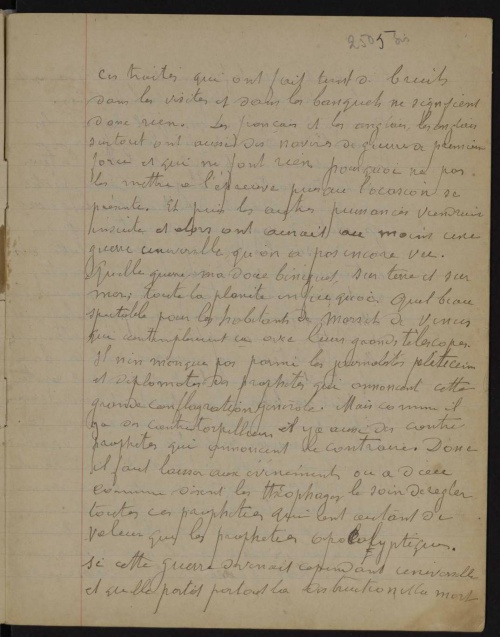 2505 bis
ces traités qui ont fait tant de bruit
dans les visites et dans les banquets ne signifient
donc rien. Les français et les anglais, les anglais
surtout ont aussi des navires de guerre de première
force et qui ne font rien pourquoi ne pas
les mettre a l'épreuve puisque l'ocasion se
présente. Et puis les autres puissances viendraient
ensuite et alors ont aurait au moins une
guerre universelle qu'on a pas encore vue.
Quelle guerre ma doue biniguet sur terre et sur
mer, toute la planète en feu quoi. Quel beau
spectacle pour les habitants de Mars et de Vénus
qui contemplent ça avec leurs grands télescopes.
Il n'en manque pas parmi les journalistes politiciens
et diplomates des prophètes qui annoncent cette
grande conflagration générale. Mais comme il
ya des contretorpilleurs il y a aussi des contre
prophètes qui annoncent le contraire. Donc
il faut laisser aux événements ou a dieu
comme disent les théophages le soin de régler
toutes ces prophéties qui ont autant de
valeur que les prophéties apocalyptiques.
Si cette guerre devenait cependant universelle
et qu'elle portât partout la destruction et la mort